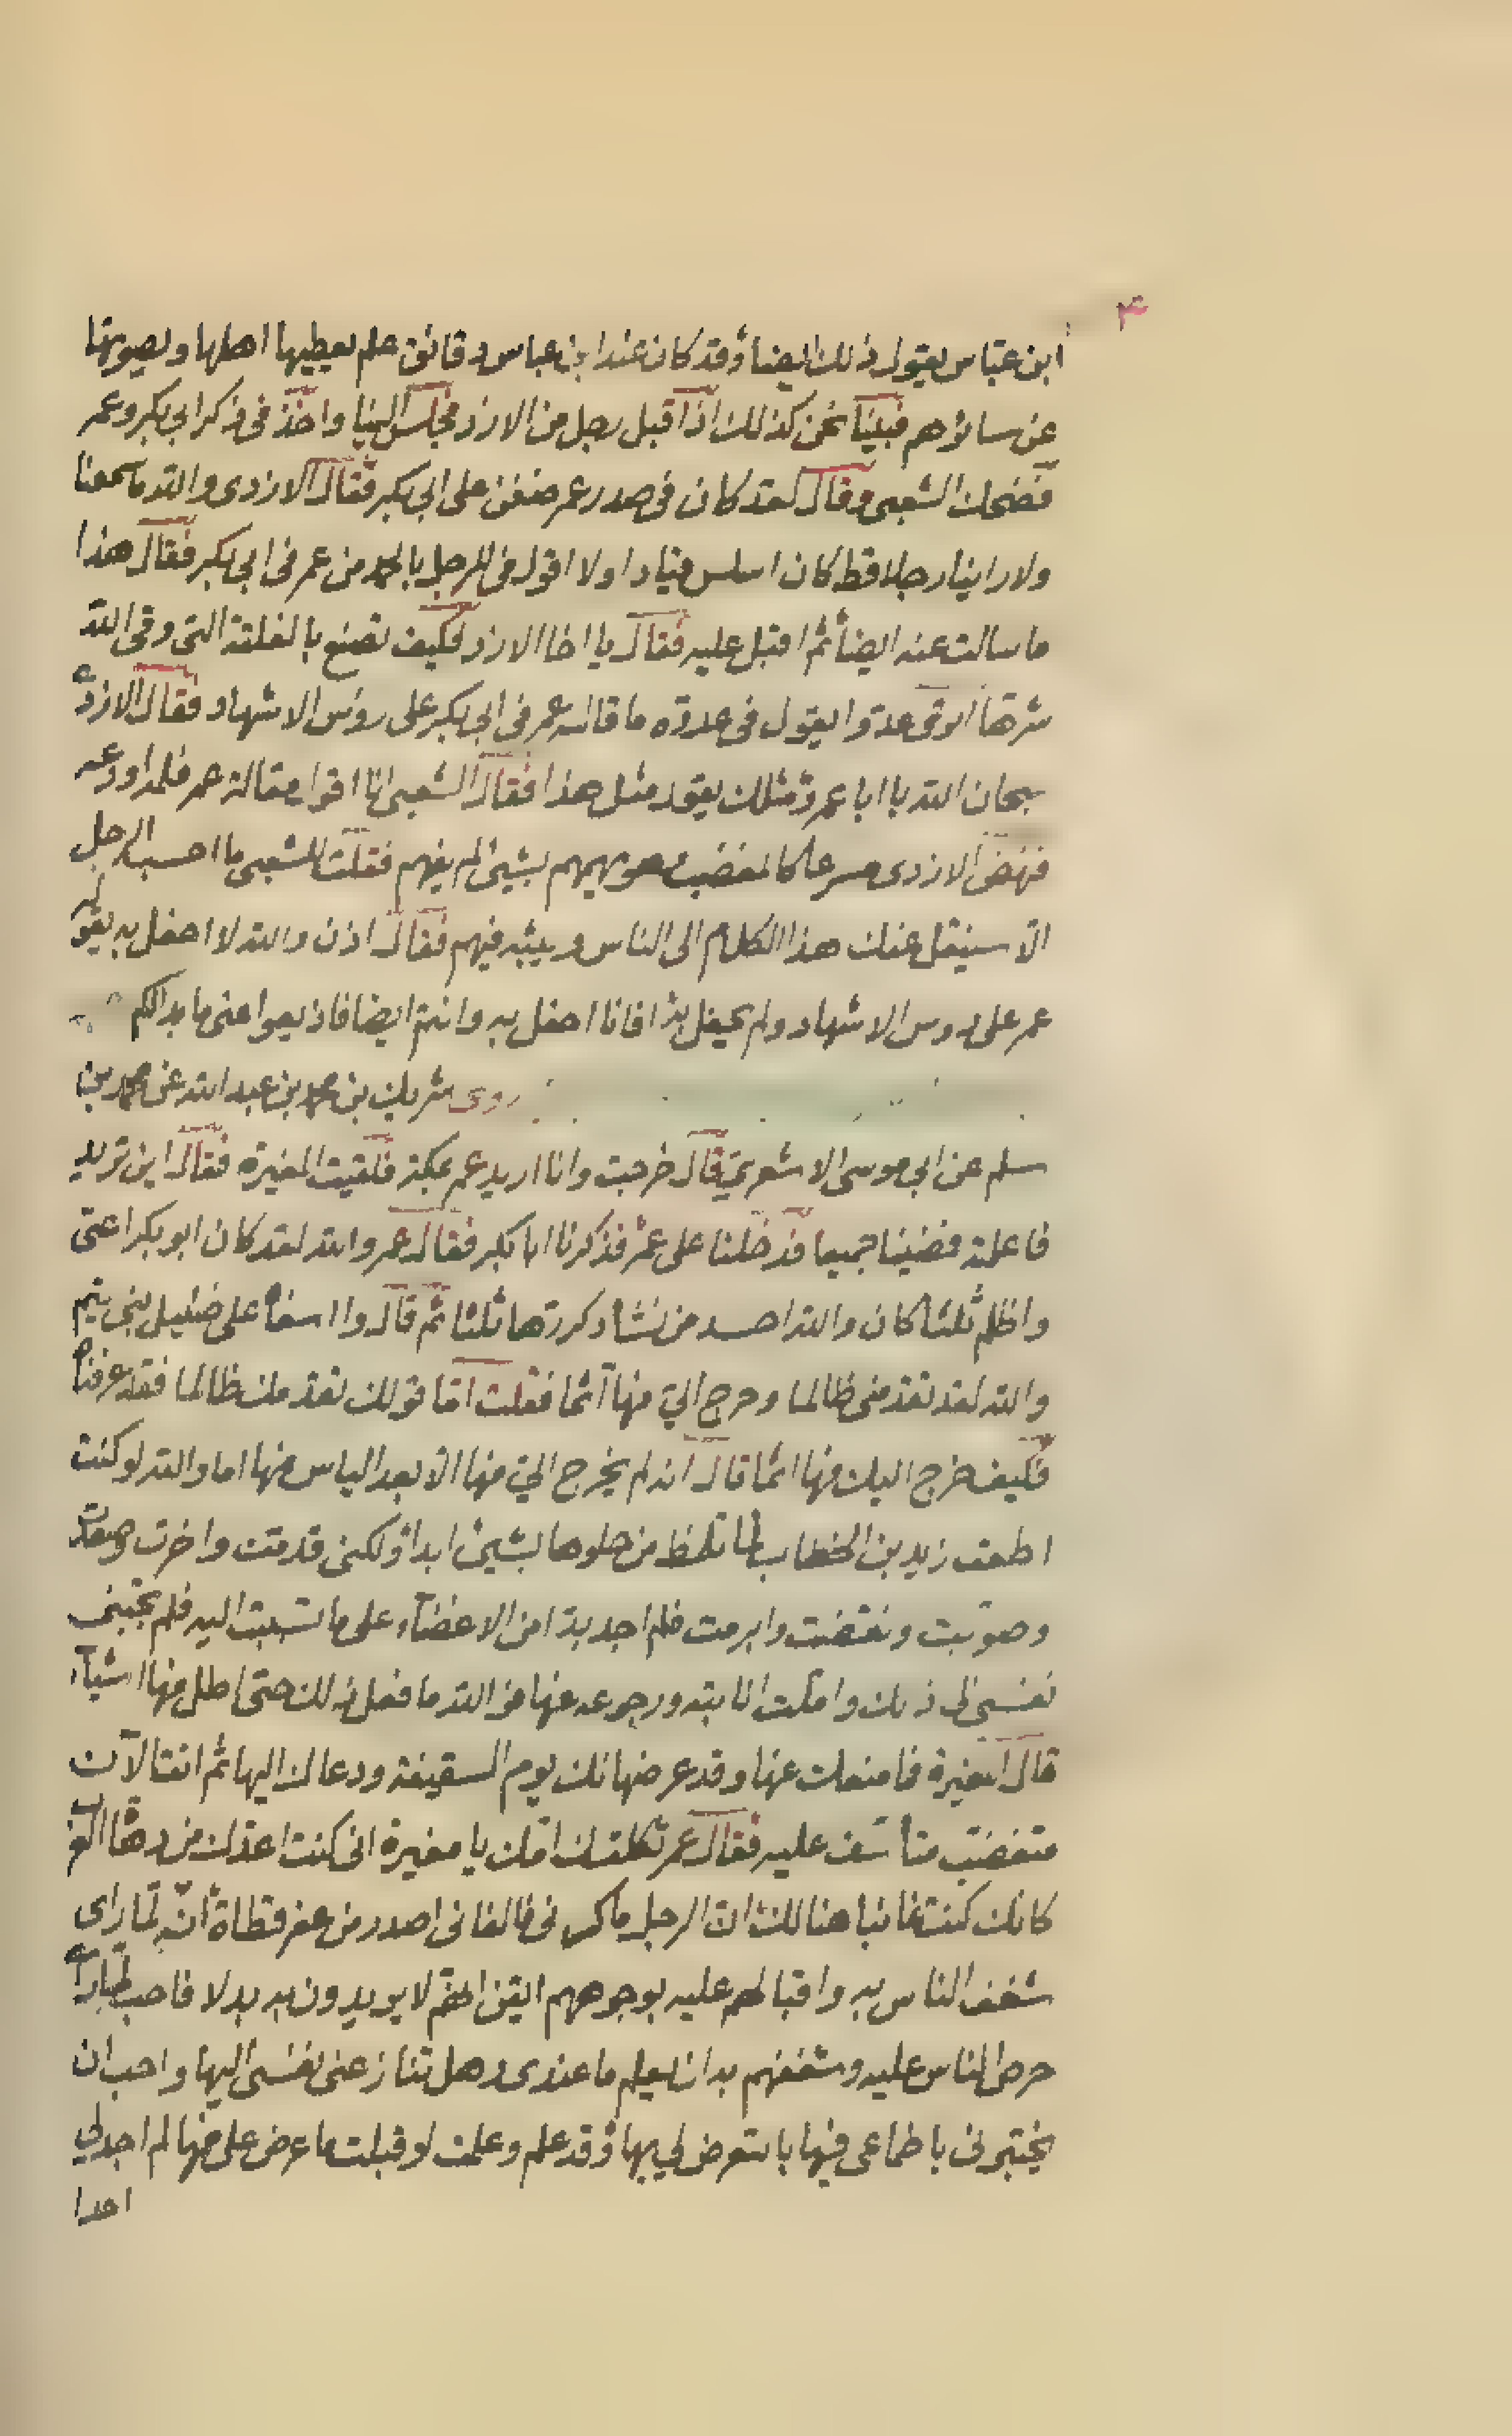 ۳
ابن عباس يقول ذلك ايضا وقد كان عند ابن عباس دقائق علم يعطيها اهلها ويصونها
عن سائرهم فبينا نحن كذلك اذ اقبل رجل من الازد فجلس الينا واخذ فى ذكر ابى بكر وعمر
فضحك الشعبى وقال لقد كان فى صدر عمر ضغن على ابى بكر فقال الازدى والله ما سمعنا
ولا راينا رجلا قط كان اسلس قيادا ولا اقول فى الرجل بالجميل من عمر فى ابى بكر فقال هذا
ما سالت عنه ايضا ثم اقبل عليه فقال يا اخا الازد فكيف تصنع بالفلتة التى وقى الله
شرها اترى عدوا يقول فى عدوه ما قاله عمر فى ابى بكر على رؤس الاشهاد فقال الازدى
سبحان الله يا ابا عمرو مثلك يقول مثل هذا فقال الشعبى انا اقول مقالة عمر فلمه او دعه
فنهض الازدى مسرعا كالمغضب وهو يهمهم بشئ لم يفهم فقلت للشعبى ما احسب الرجل
الا سينقل عنك هذا الكلام الى الناس ويبثه فيهم فقال اذن والله لا احفل به يقوله
عمر على رؤس الاشهاد ولم يحفل به افانا احفل به وانتم ايضا فاذيعوا عنى ما بدا لكم
روى شريك بن محمد بن عبد الله عن محمد بن
سلم عن ابى موسى الاشعرى قال خرجت وانا اريد عمر بمكة فلقيت المغيرة فقال اين تريد
فاعلمته فمضينا جميعا فدخلنا على عمر فذكرنا ابا بكر فقال عمر والله لقد كان ابو بكر اعق
واظلم ثلثا كان والله احسد من نشأ وكررتها ثلثا ثم قال وا اسفا على ضئيل بنى تيم
والله لقد تقدمنى ظالما وخرج الى منها آثما فقلت اما قولك تقدمك ظالما فقد عرفناه
فكيف خرج اليك منها اثما قال انه لم يخرج الى منها الا بعد الياس منها اما والله لو كنت
اطعت زيد بن الخطاب لما تلمظ من حلوها بشئ ابدا ولكنى قدمت واخرت وصعدت
وصوبت ونقضت وابرمت فلم اجد بدا من الاغضاء على ما نشبت اليه فلم تجبنى
نفسى الى ذلك واملت انابته ورجوعه عنها فو الله ما فعل ذلك حتى اطل منها اشياء
قال المغيرة فما منعك عنها وقد عرضها لك يوم السقيفة ودعاك اليها ثم انت الآن
متغضب متأسف عليه فقال عمر ثكلتك امك يا مغيرة انى كنت اعدك من دهاة العرب
كانك كنت غائبا هنالك ان الرجل ماكرنى فالفانى احذر من قطاة انه لما راى
شغف الناس به واقبالهم عليه بوجوههم ايقن انهم لا يريدون به بدلا فاحب لما راى
حرص الناس عليه وشغفهم به ان يعلم ما عندى وهل تنازعنى نفسى اليها واحب ان
يختبرنى باطماعى فيها بالتعرض لى بها وقد علم وعلمت لو قبلت ما عرض على منها لم اجد لى
احدا